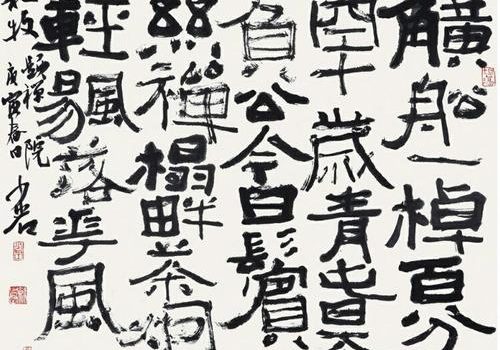 觵船一棹百分
空十歲青春
負公今日鬢
絲禪榻畔茶烟
輕颺落華風
杜牧
題禪院
寅春日